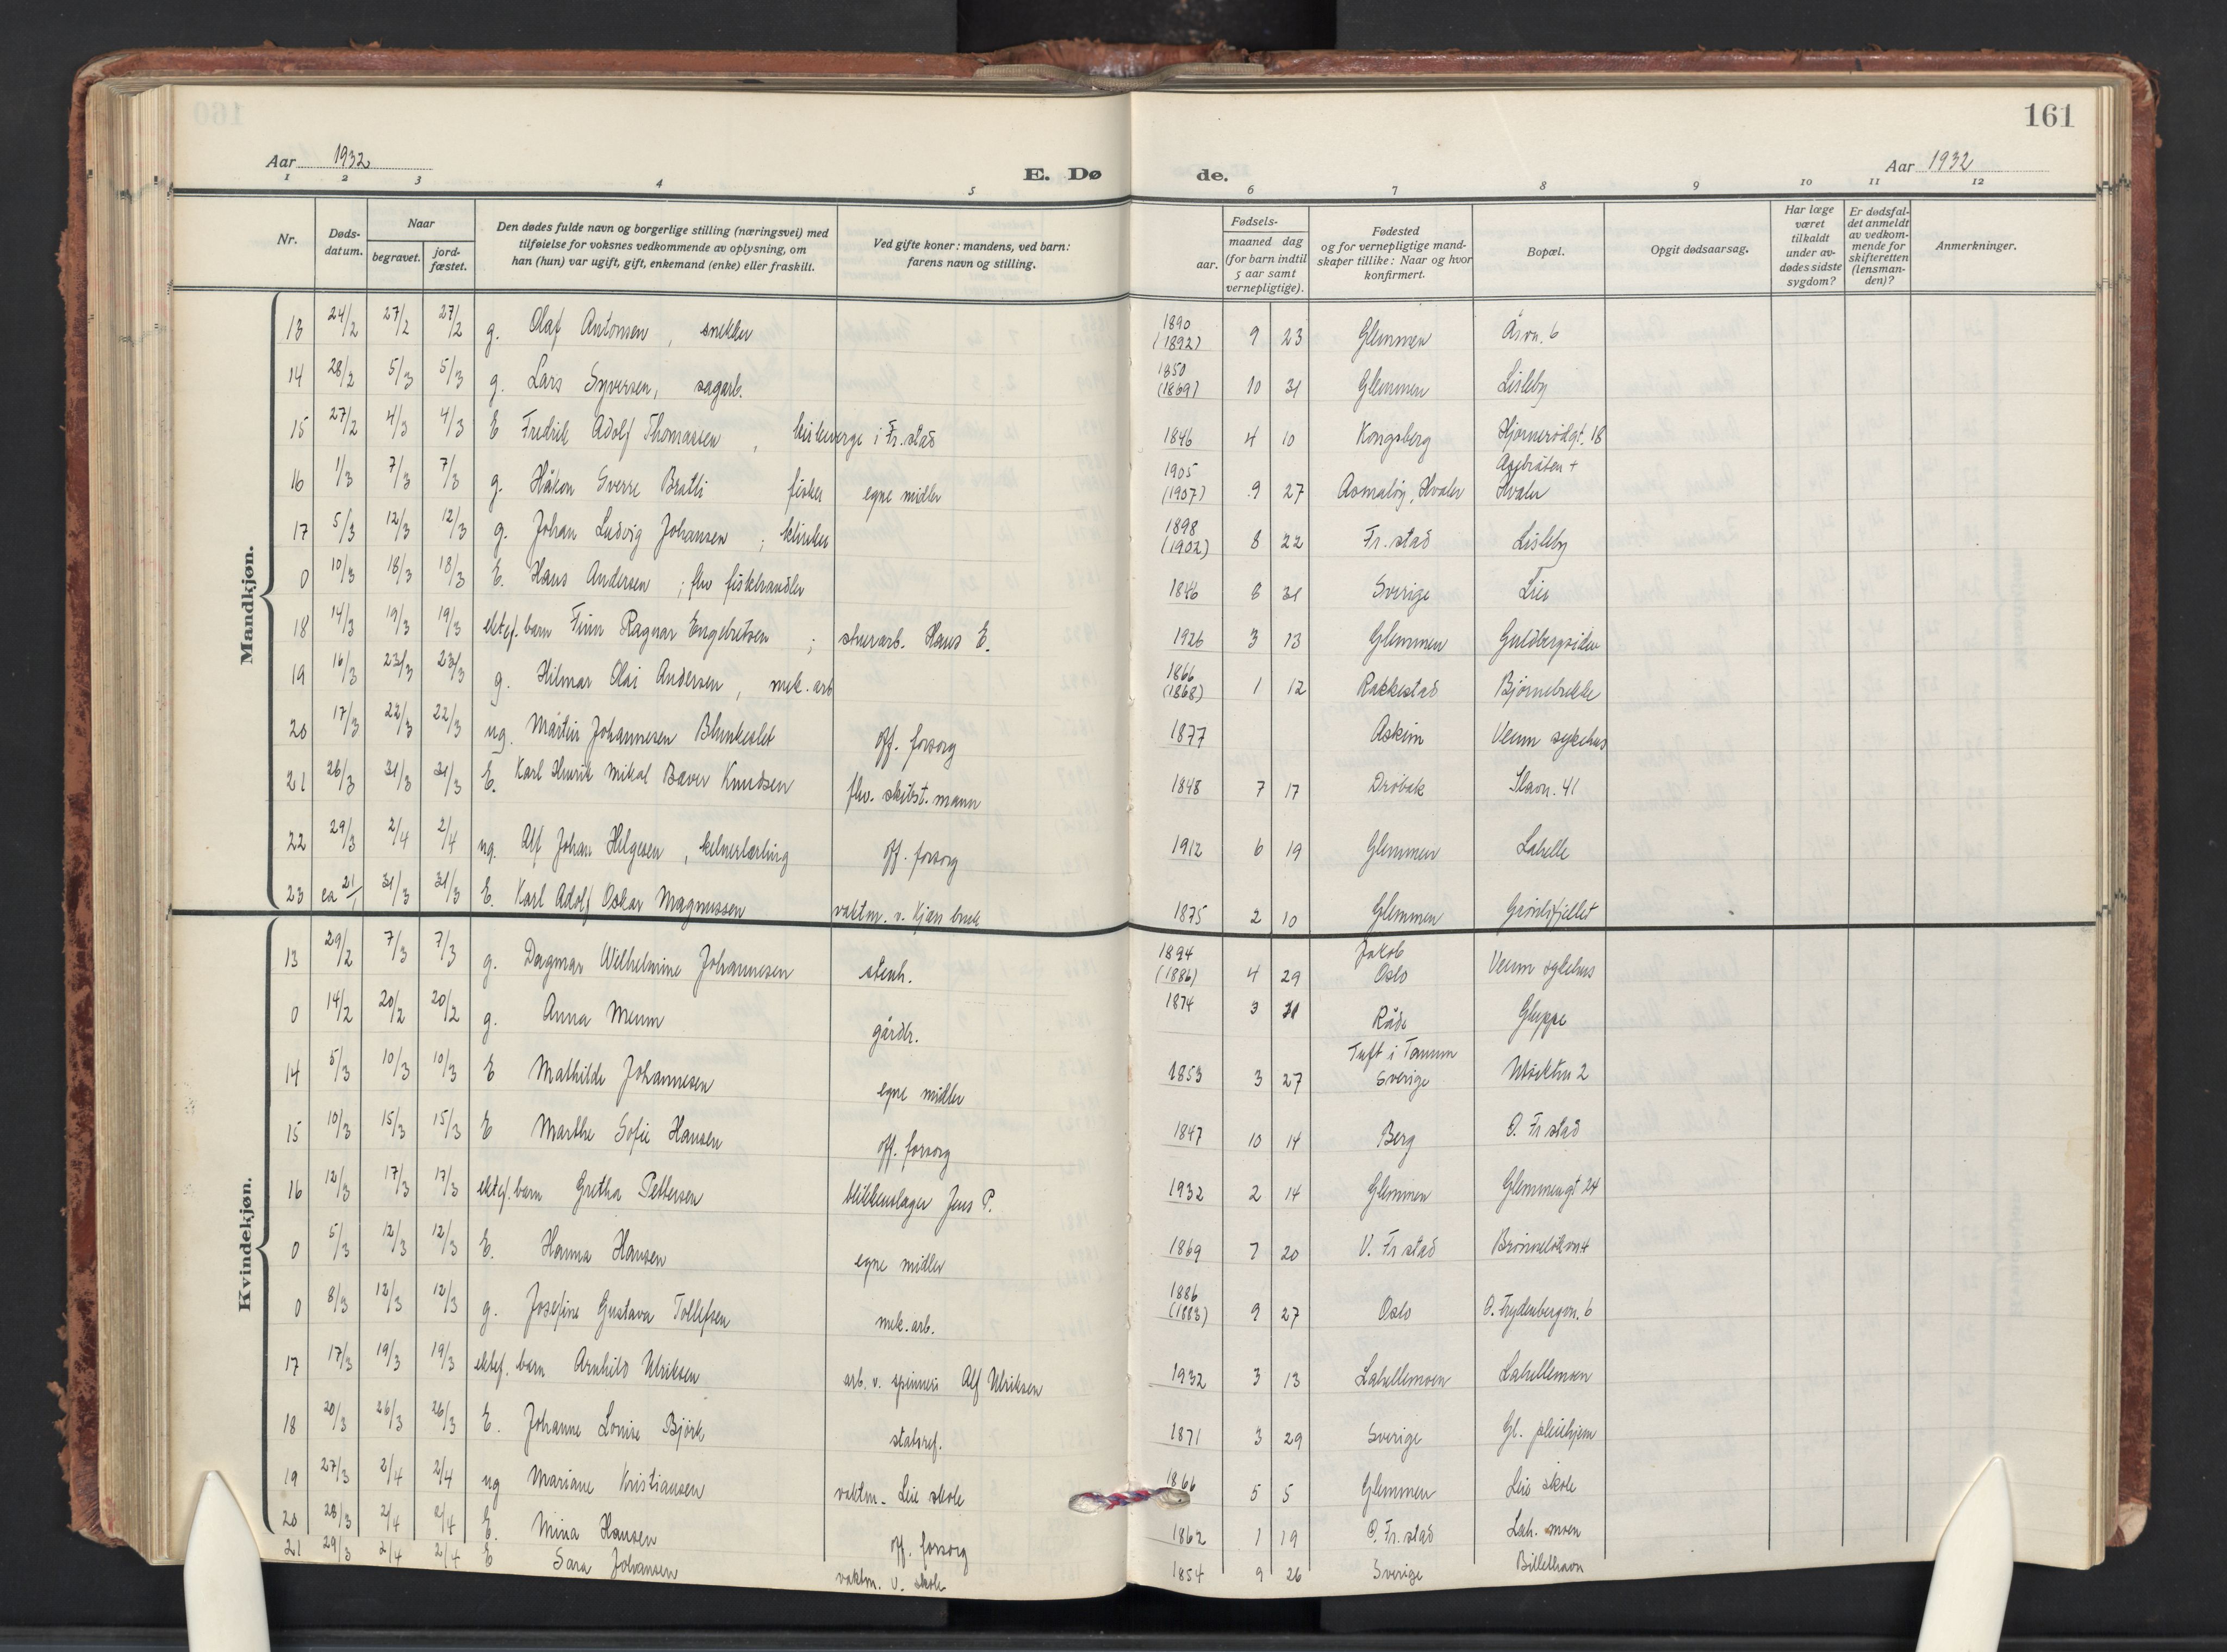 161
Aar 1932
E. Dø de.
Aar 1932
1 2 3 4 5 6 7 8 9 10 11 12
Nr.
Døds-datum.
Naar
begravet.
jord-fæstet.
Den dødes fulde navn og borgerlige stilling (næringsvei) med
tilføielse for voksnes vedkommende av oplysning, om
han (hun) var ugift, gift, enkemand (enke) eller fraskilt.
Ved gifte koner: mandens, ved barn:
farens navn og stilling.
Fødsels-
aar.
maaned dag
(for barn indtil
5 aar samt
vernepligtige).
Fødested
og for vernepligtige mand-
skaper tillike: Naar og hvor
konfirmert.
Bopæl.
Opgit dødsaarsag.
Har læge
været
tilkaldt
under av-
dødes sidste
sygdom?
Er dødsfal-
det anmeldt
av vedkom-
mende for
skifteretten
(lensman-
den)?
Anmerkninger.
Mandkjøn.
13 24/2 27/2 27/2 g. Olaf Antonsen, snekker 1890 (1892) 9 23 Glemmen Åsvn. 6
14 28/2 5/3 5/3 g. Lars Syversen, sagarb. 1850 (1869) 10 31 Glemmen Lisleby
15 27/2 4/3 4/3 E Fredrik Adolf Thomassen, kirkeverge i Fr.stad 1846 4 10 Kongsberg 18
16 1/3 7/3 7/3 g. Håkon Sverre Bratli fisker egne midler 1905 (1907) 9 27 Asmaløy, Hvaler Hvaler
17 5/3 12/3 12/3 g. Johan Ludvig Johansen; klinker 1898 (1902) 8 22 Fr.stad Lisleby
0 10/3 18/3 18/3 E. Hans Andersen; fhv fiskhandler 1846 8 31 Sverige Leie
18 14/3 19/3 19/3 ektef. barn Finn Ragnar Engebretsen; stuerarb. Hans E. 1926 3 13 Glemmen Guldbergsiden
19 16/3 23/3 23/3 g. Hilmar Olai Andersen, mek. arb 1866 (1868) 1 12 Rakkestad Bjørnebekke
20 17/3 22/3 22/3 ug. Martin Johannesen Blunkeslet off. forsorg 1877 Askim Veum sykehus
21 26/3 31/3 31/3 E. Karl Henrik Mikal Baver Knudsen fhv. skibst.mann 1848 7 17 Drøbak 41
22 29/3 2/4 2/4 ug. Alf Johan Helgesen, kelnerlærling off. forsorg 1912 6 19 Glemmen Lahelle
23 ca 21/1 31/3 31/3 E. Karl Adolf Oskar Magnussen vaktm. v. Kjærs bruk 1875 2 10 Glemmen Grønlifjellet
Kvindekjøn.
13 29/2 7/3 7/3 g. Dagmar Wilhelmine Johannesen stenh. 1894 (1886) 4 29 Jakob Oslo Veum sykehus
0 14/2 20/2 20/2 g. Anna Meum gårdbr. 1874 3 31 Råde Gluppe
14 5/3 10/3 10/3 E Mathilde Johannesen egne midler 1853 3 27 Tuft i Tanum Sverige 2
15 10/3 15/3 15/3 E Marthe Sofie Hansen off. forsorg 1847 10 14 Berg O. Fr stad
16 12/3 17/3 17/3 ektef. barn Gretha Pettersen blikkenslager Jens P. 1932 2 14 Glemmen Glemmengt 24
0 5/3 12/3 12/3 E. Hanna Hansen egne midler 1869 7 20 V. Fr stad
0 8/3 12/3 12/3 g. Josefine Gustava Tollefsen mek. arb. 1886 (1883) 9 27 Oslo O. Frydenbergvn. 6
17 17/3 19/3 19/3 ektef. barn Arnhild Ulriksen arb. v. spinneri Alf Ulriksen 1932 3 13 Lahellemoen Lahellemoen
18 20/3 26/3 26/3 E. Johanne Lovise Bjørk statsref. 1871 3 29 Sverige Gl. pleiehjem
19 27/3 2/4 2/4 ug Mariane Kristiansen vaktm. Leie skole 1866 5 5 Glemmen Leie skole
20 28/3 2/4 2/4 E. Mina Hansen off. forsorg 1862 1 19 O. Fr.stad Lah. moen
21 29/3 2/4 2/4 E Sara Johansen vaktm. v. skole 1854 9 26 Sverige